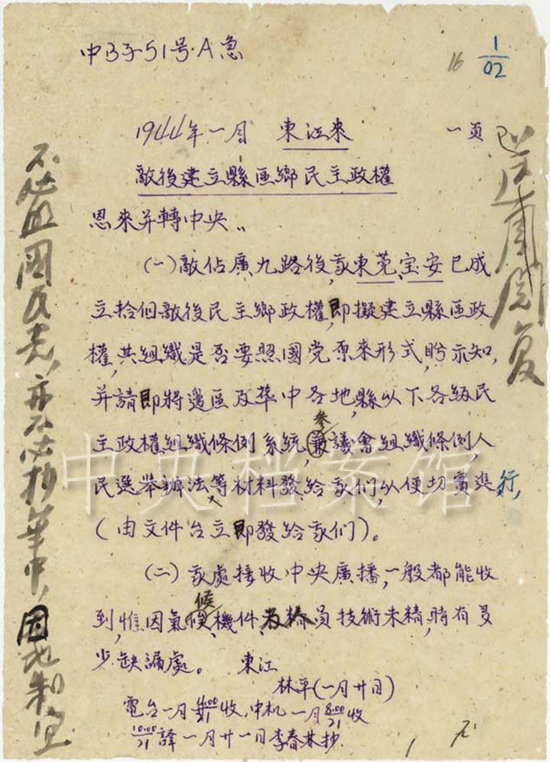 51号·A急
16
1/02
1944年一月 東江來 一頁
敵後建立縣區鄉民主政權
恩來并轉中央:
(一)敵佔廣九路後,我東莞、宝安已成
立拾個敵後民主鄉政權,即擬建立縣區政
權,其組織是否要照國党原來形式,盼示知,
并請即將邊區及華中各地縣以下各級民
主政權組織條例系統,參議會組織條例,人
民選舉辦法等材料發給我们以便切實進行,
(由文件台立即發給我们)。
(二)我處接收中央廣播,一般都能收
到,惟因氣候、機件、及員技術未精,時有多
少缺漏處。 東江
林平(一月廿日)
電台一月 收,中机一月 8:00/21 收
10:00/21 譯一月廿一日李春林抄
不必照國民党,亦不必抄華中,因地制宜
中央档案馆